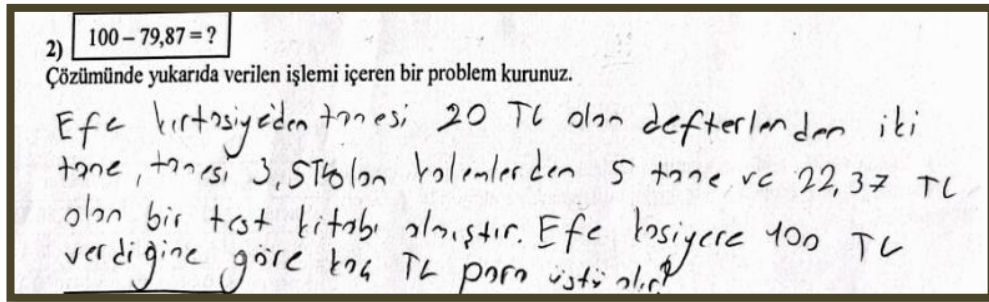 100 – 79,87 = ?
2)
Çözümünde yukarıda verilen işlemi içeren bir problem kurunuz.
Efe kırtasiyeden tanesi 20 TL olan defterlerden iki
tane, tanesi 3,5 TL olan kalemlerden 5 tane, ve 22,37 TL
olan bir test kitabı almıştır. Efe kasiyere 100 TL
verdiğine göre kaç TL para üstü alır?